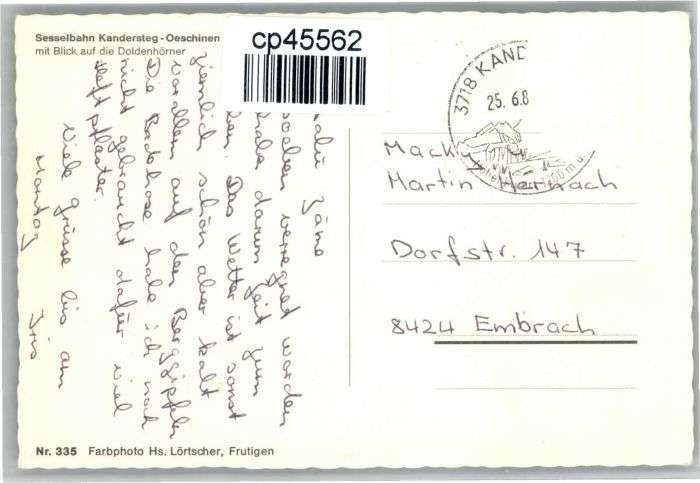 Sesselbahn Kandersteg - Oeschinen
mit Blick auf die Doldenhörner
cp45562
3718 KAND
25. 6.8
Macky
Martin
Dorfstr. 147
8424 Embrach
zäme
verregnet worden
habe darum Zeit zum
Das Wetter ist sonst
ziemlich schön aber kalt
vorallem auf den Berggipfeln
Die Badehose habe ich noch
nicht gebraucht dafür viel
Heftpflaster.
Viele Grüsse bis am
Montag Iris
Nr. 335 Farbphoto Hs. Lörtscher, Frutigen